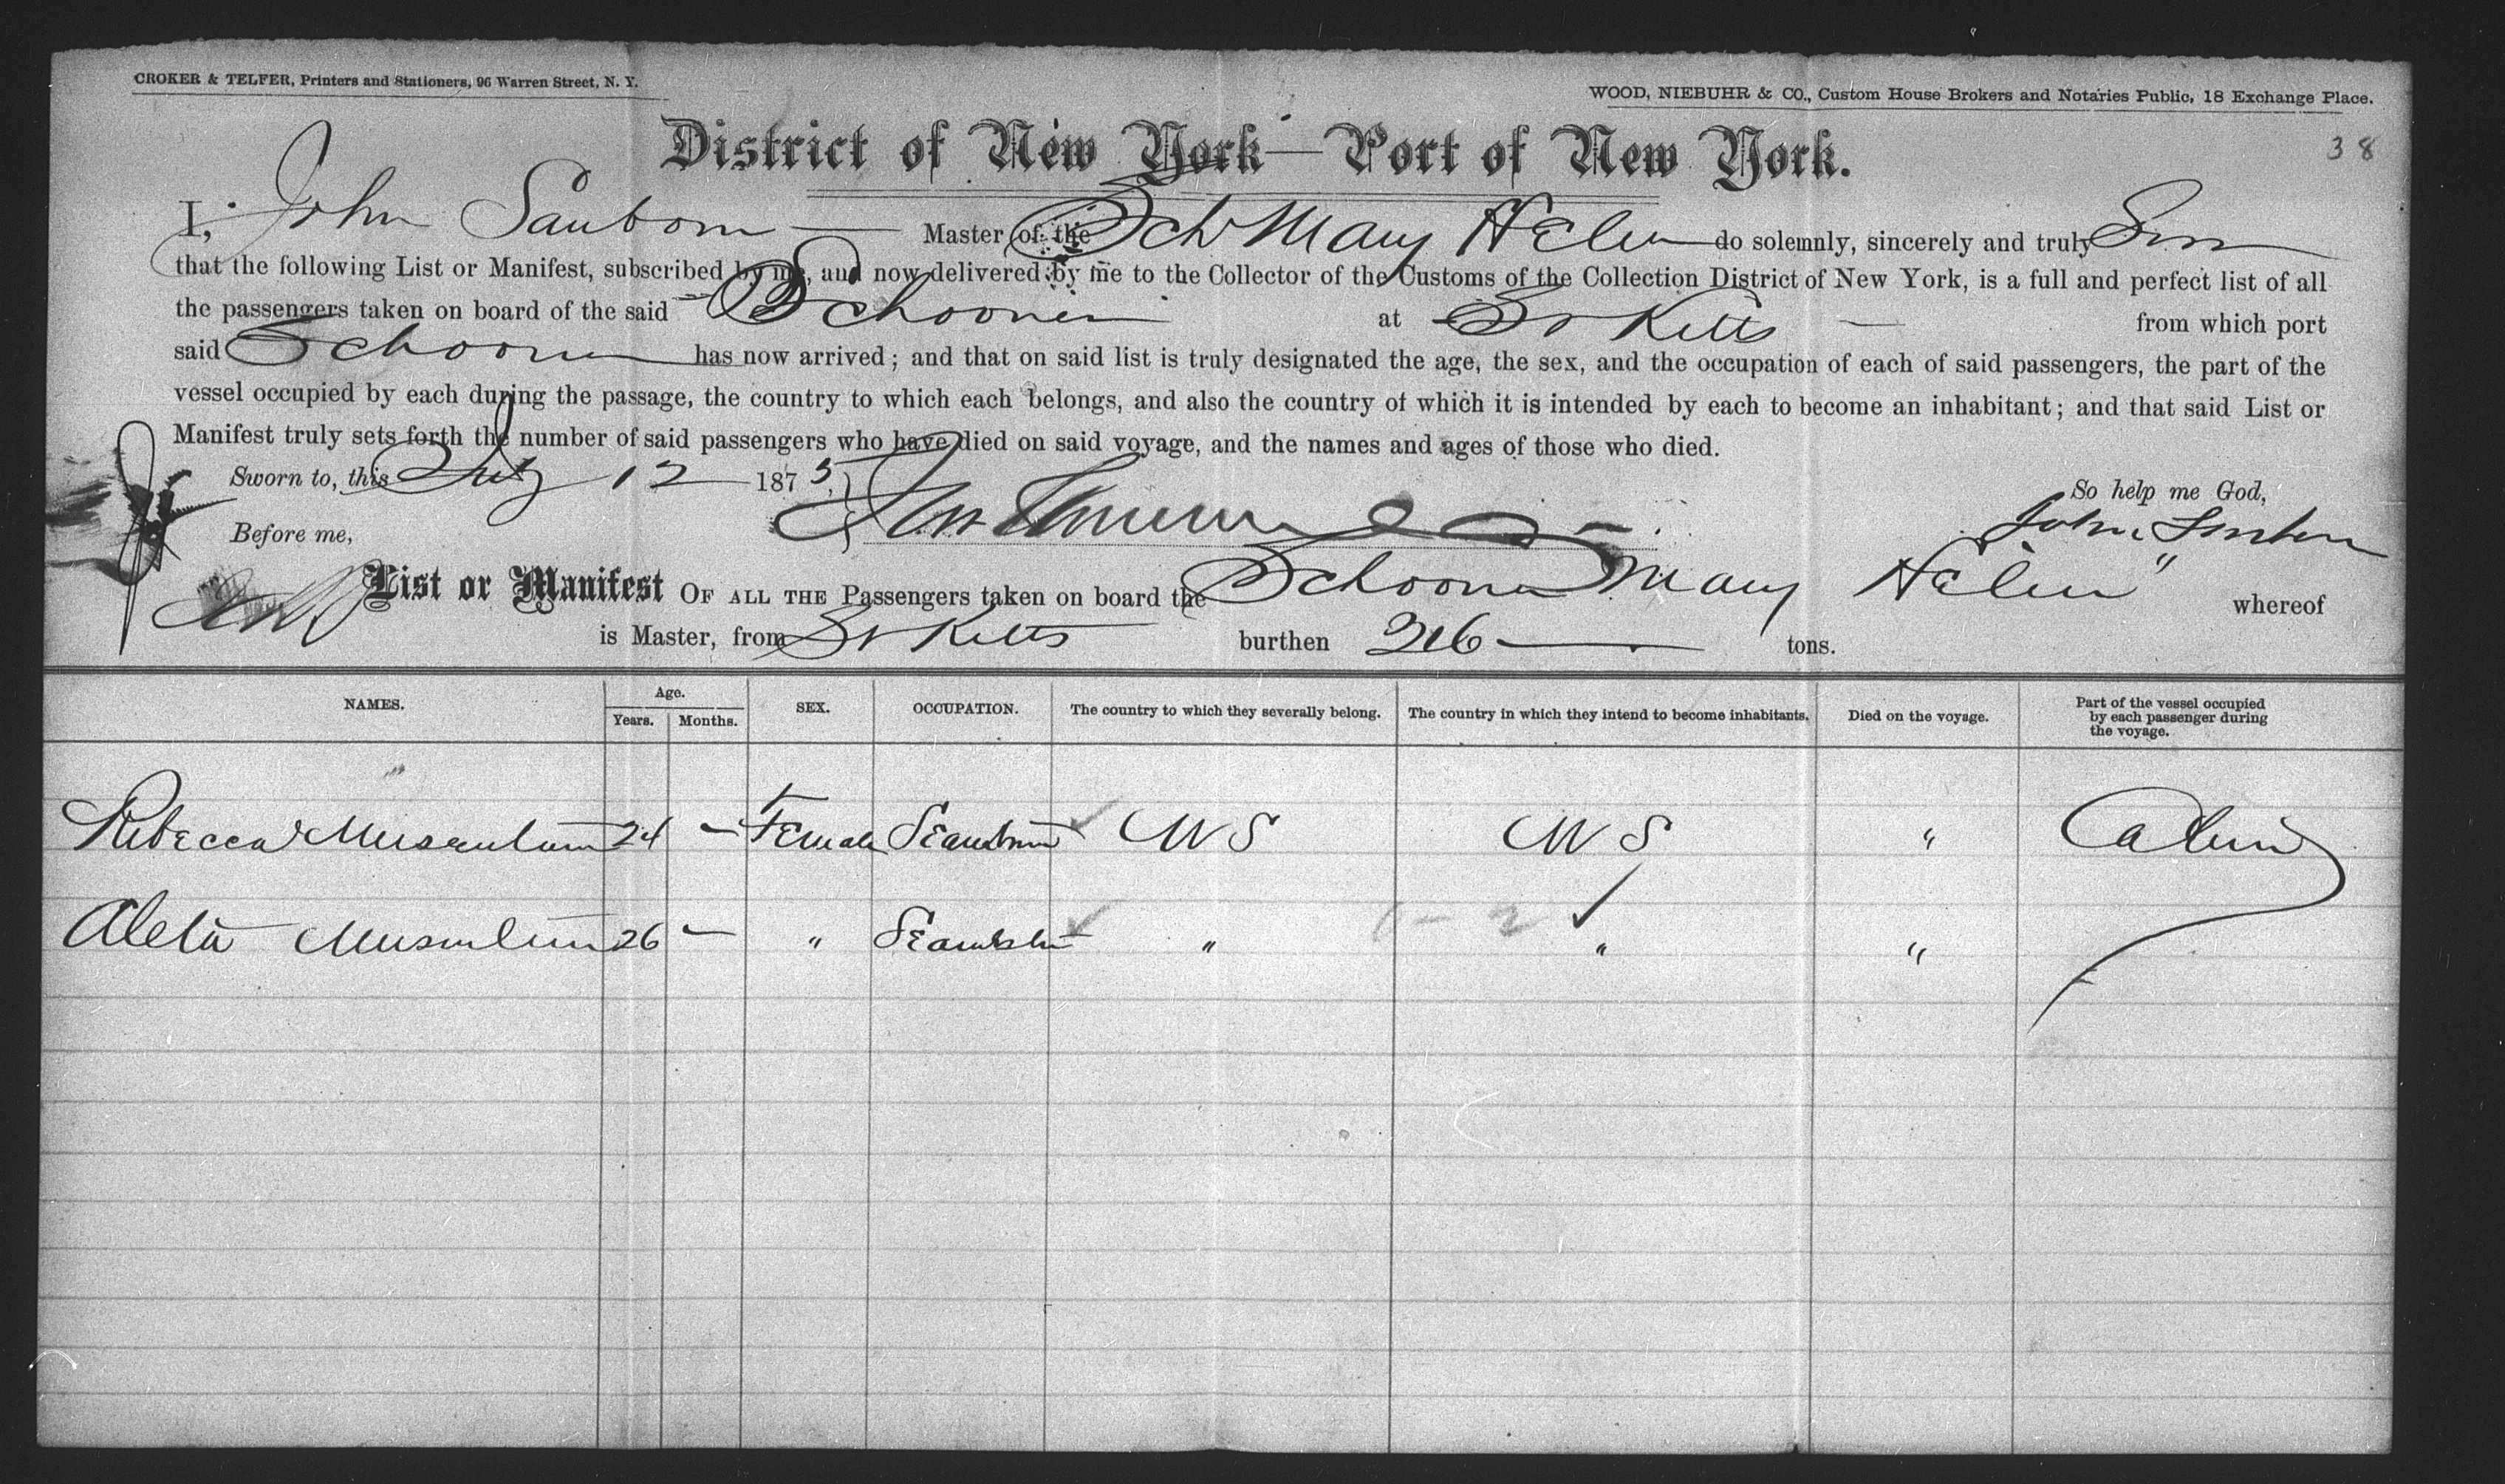 CROKER & TELFER, Printers and Stationers, 96 Warren Street, N. Y.
WOOD, NIEBUHR & CO., Custom House Brokers and Notaries Public, 18 Exchange Place.
District of New York—Port of New York.
38
I, John Sanborn Master of the Sch Mary Helen do solemnly, sincerely and truly
that the following List or Manifest, subscribed by me, and now delivered by me to the Collector of the Customs of the Collection District of New York, is a full and perfect list of all
the passengers taken on board of the said Schooner at St Kitts from which port
said Schooner has now arrived; and that on said list is truly designated the age, the sex, and the occupation of each of said passengers, the part of the
vessel occupied by each during the passage, the country to which each belongs, and also the country of which it is intended by each to become an inhabitant; and that said List or
Manifest truly sets forth the number of said passengers who have died on said voyage, and the names and ages of those who died.
Sworn to, this July 12 1875,
So help me God,
Before me,
John
List or Manifest OF ALL THE Passengers taken on board the Schooner Mary Helen" whereof
is Master, from St Kitts burthen 216 tons.
NAMES. Age. Years. Months. SEX. OCCUPATION. The country to which they severally belong. The country in which they intend to become inhabitants. Died on the voyage. Part of the vessel occupied by each passenger during the voyage.
Rebecca 24 — Female U S U S " Cabin
Aleta 26 — " " " "